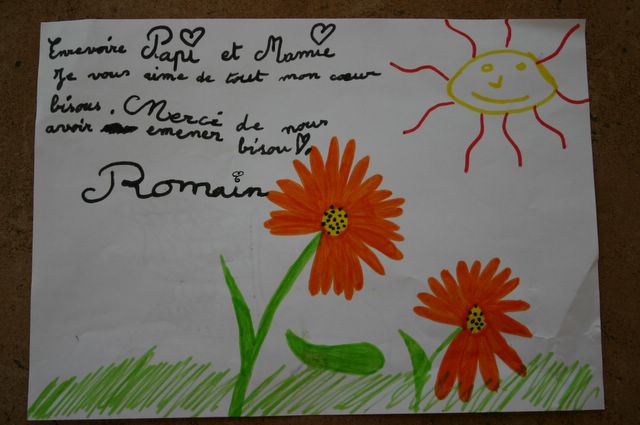 Enrevoire Papi et Mamie
Je vous aime de tout mon cœur
bisous. Merci de nous
avoir emener bisou.
Romain